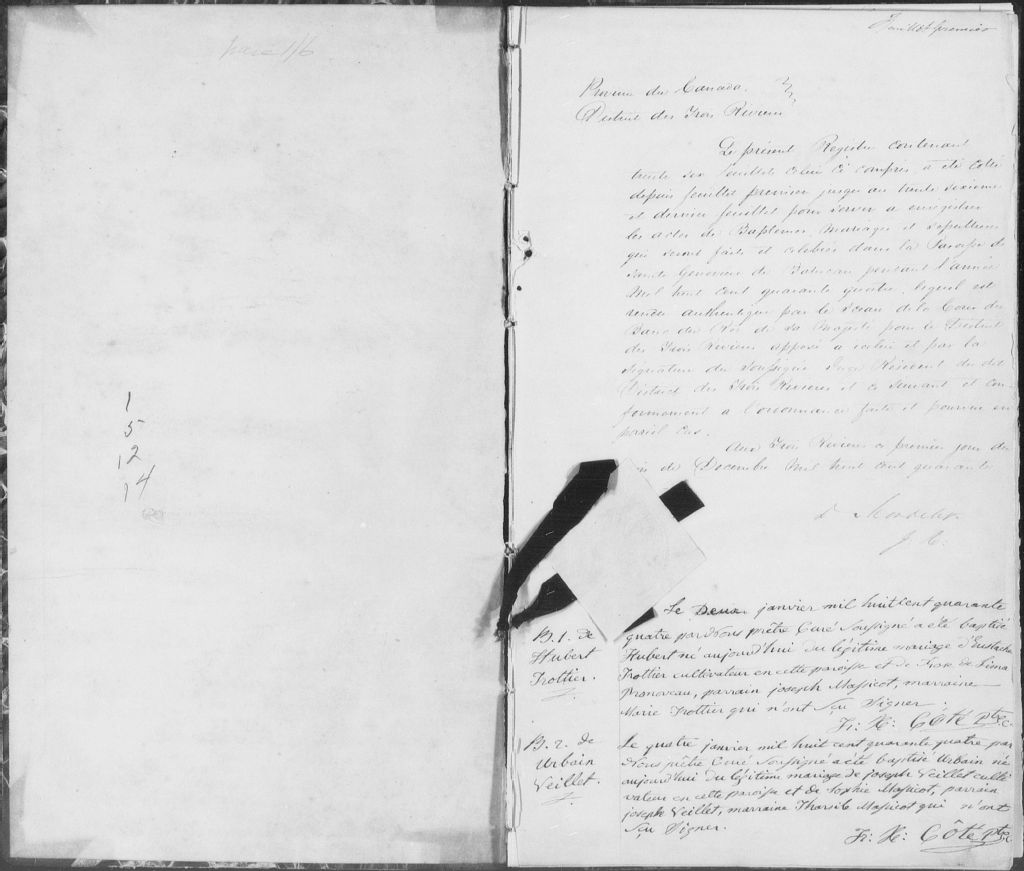 page 116
1
5
12
14
Feuillet premier
Province du Canada.
District des Trois Rivieres
Le présent Registre contenant
trente six feuillets celui ci compris, a été coté
depuis feuillet premier jusqu'au trente sixieme
et dernier feuillet pour servir a enrégistrer
les actes de Baptemes, Mariages et Sepultures
qui seront faits et célébrés dans la Paroisse de
Sainte Genevieve de Batiscan pendant l'année
Mil huit cent quarante quatre, lequel est
rendu authentique par le Sceau de la Cour du
Banc du Roi de Sa Majesté pour le District
des Trois Rivieres apposé a icelui et par la
Signature du Soussigné Juge Résident du dit
District des Trois Rivieres et ce suivant et con-
formément a l'ordonnance faite et pourvue en
pareil cas.
Aux Trois Rivieres ce premier jour du
de Décembre Mil huit cent quarante
Le Deux janvier mil huit cent quarante
B. 1. de
Hubert
Trottier.
quatre par Nous prêtre Curé Soussigné a été baptisé
Hubert né aujourd'hui du légitime mariage d'Eustache
Trottier cultivateur en cette paroisse et de
Pronoveau, parrain joseph Massicot, marraine
Marie Trottier qui n'ont Sçu Signer
Fr: X: Côté ptre
B. 2. de
Urbain
Veillet.
Le quatre janvier mil huit cent quarante quatre par
Nous prêtre Curé Soussigné a été baptisé Urbain né
aujourd'hui du légitime mariage de joseph Veillet culti
vateur en cette paroisse et de Sophie Massicot, parrain
joseph Veillet, marraine Tharsile Massicot qui n'ont
Sçu Signer.
Fr: X: Côté ptre